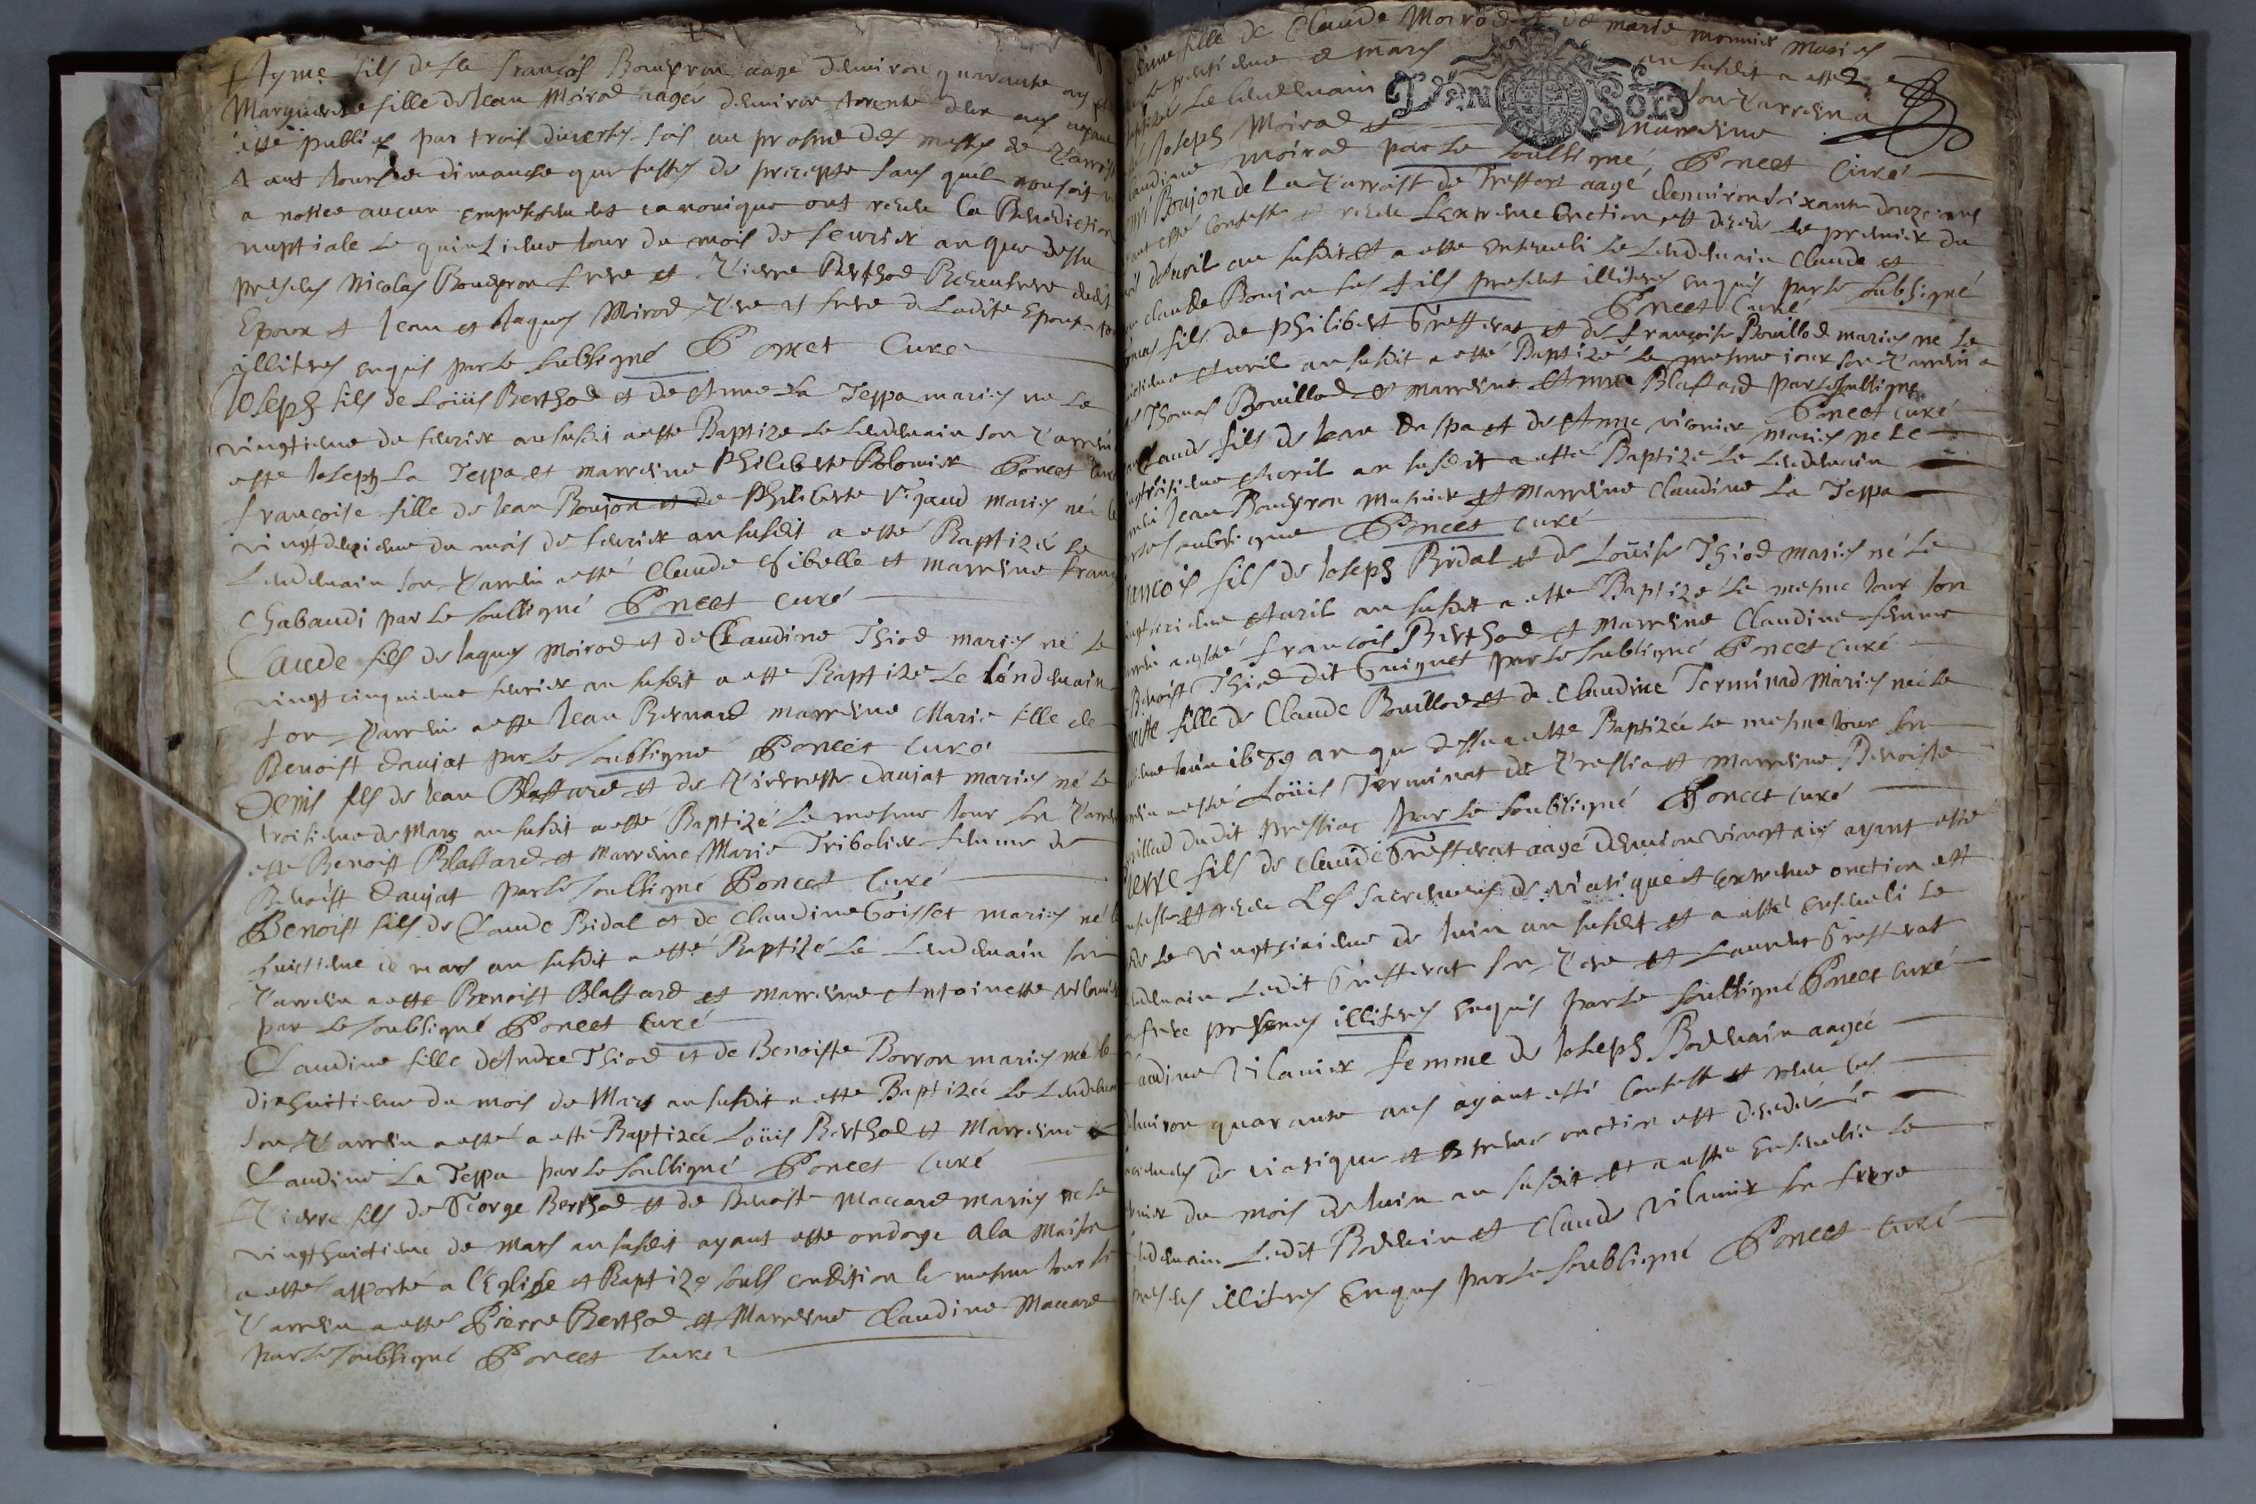 Ayme fils de fe François Bouvron aagé denviron quarante ans et
Marguerite fille de Jean Moirod aagée denviron trente deux ans ayant
esté publiez par trois diverses fois au prosne des messes de Parroisse
tant jours de dimanche que festes de precepte sans quil nous soit venu
a notice aucun empeschement canonique ont receu la Benediction
nuptiale le quinzieme jour du mois de feuvrier an que dessu
presens Nicolas Bouvron frere et Pierre Berthod Beaufrere dudit
Epoux et Jean et Jaques Moirod Pere et frere de Ladite Epouse
illitires enquis par le soubsigné Poncet Curé
Joseph fils de Loüis Berthod et de Anne La Teppa mariés né Le
vingtieme de feuvrier an susdit a esté Baptize Le Lendemain son Parrein
esté Joseph La Teppa et marreine Philiberte Poncet Curé
Françoise fille de Jean Boujon et de Philiberte Vigaud mariés née le
vingtdeuxieme du mois de feuvrier an susdit a esté Baptizée Le
Lendemain son Parrein a esté Claude Gibelle et marreine
Chabaudi par Le soubsigné Poncet Curé
Claude fils de Jaques Moirod et de Claudine Thiod mariés né Le
vingtcinquieme feuvrier an susdit a esté Baptize Le Lendemain
son Parrein a esté Jean Bernard marreine Marie fille de
Benoist Daujat par Le soubsigné Poncet Curé
Denis fils de Jean Blassard et de Pierrette Daujat mariés né Le
troisieme de Mars an susdit a esté Baptizé Le mesme Jour son Parrein
esté Benoist Blassard et Marreine Marie Tribolier femme de
Benoist Daujat par le soubsigné Poncet Curé
Benoist fils de Claude Bidal et de Claudine Goisset mariés né le
huictieme de mars an susdit a esté Baptizé Le Lendemain son
Parrein a esté Benoist Blassard et Marreine Antoinette Vilanier
par Le soubsigné Poncet Curé
Claudine fille d'Andre Thiod et de Benoiste Borron mariés née le
dixhuitieme du mois de Mars an susdit a esté Baptizée Le Lendemain
son Parrein a esté a esté Baptizée Loüis Berthod et Marreine
Claudine La Teppa par Le soubsigné Poncet Curé
Pierre fils de George Berthod et de Benoiste Maccard mariés né Le
vingthuictieme de Mars an susdit ayant esté ondoyé a la Maison
a esté apporté a l'Eglise et Baptizé soubs condition le mesme Jour son
Parrein a esté Pierre Berthod et Marreine Claudine Maccard
par Le soubsigné Poncet Curé
fille de Claude Moirod et de marie monnier Mariés
Le trentieme de mars an susdit a esté
Baptizée Le Lendemain son Parrein a
esté Joseph Moirod et Marreine
DEN SOLS
Claudine Moirod par Le soubsigné Poncet Curé
Boujon de La Parroisse de Treffort aagé denviron soixante douze ans
ayant esté Confessé et receu Lextreme Onction est decedé le premier du
d'avril an susdit et a esté enseveli Le Lendemain Claude et
Claude Boujon ses fils present illitires enquis par Le soubsigné
Poncet Curé
fils de Philibert Gresserat et de Françoise Bouillod mariés né Le
Avril an susdit a esté Baptizé Le mesme jour son Parrein a
esté Thomas Bouillod et marreine Anne Blassard par Le soubsigné
Poncet Curé
Claude fils de Jean Daspa et de Anne vionier mariés né Le
vingttroisieme Avril an susdit a esté Baptizé Le Lendemain
Jean Bouvron musnier et Marreine Claudine La Teppa
par Le soubsigné Poncet Curé
François fils de Joseph Bidal et de Loüise Thiod mariés né Le
Avril an susdit a esté Baptizé Le mesme Jour son
Parrein a esté François Berthod et Marreine Claudine femme
Benoist Thiod dit Guignet par Le soubsigné Poncet Curé
fille de Claude Bouillod et de Claudine Terminad Mariés née Le
Juin 1689 an que dessu a esté Baptizée Le mesme Jour son
Parrein a esté Loüis Terminat de Pressia et Marreine Benoiste
dudit Pressiac par Le soubsigné Poncet Curé
Pierre fils de Claude Gresserat aagé denviron vingt ans ayant esté
confessé et receu Les Sacremens de viatique et extreme onction est
decedé Le vingtsixieme de Juin an susdit et a esté enseveli Le
Lendemain Ledit Gresserat son Pere et Laurent Gresserat
son frere presens illitires enquis par Le soubsigné Poncet Curé
Claudine Vilanier femme de Joseph Bodrain aagée
denviron quarante ans ayant esté Confessé et receu Les
Sacremens de viatique et Extreme onction est decedée Le
dernier du mois de Juin an susdit et a esté Ensevelie Le
Lendemain Ledit Bodrain et Claude Vilanier son frere
presens illitires Enquis par Le soubsigné Poncet Curé